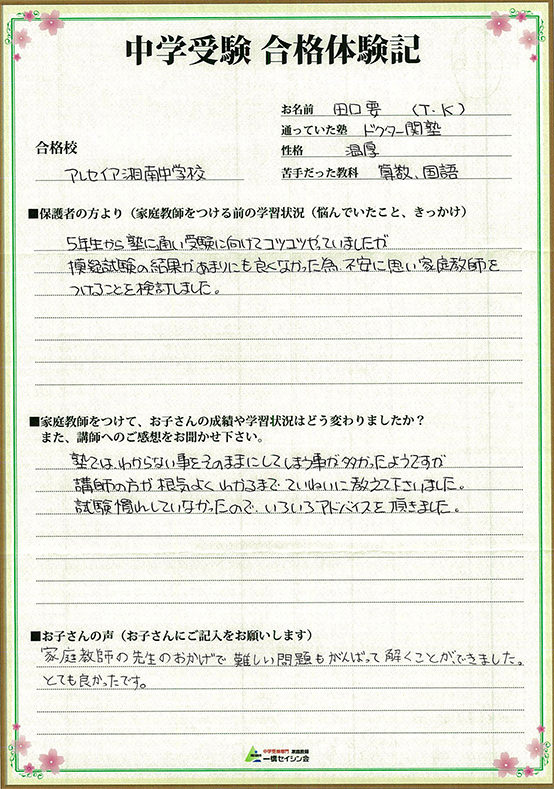 中学受験 合格体験記
お名前 田口 要 (T・K)
通っていた塾 ドクター関塾
合格校
性格 温厚
アレセイア湘南中学校
苦手だった教科 算数、国語
■保護者の方より（家庭教師をつける前の学習状況（悩んでいたこと、きっかけ）
5年生から塾に通い受験に向けてコツコツやっていましたが
模擬試験の結果があまりにも良くなかった為、不安に思い家庭教師を
つけることを検討しました。
■家庭教師をつけて、お子さんの成績や学習状況はどう変わりましたか？
また、講師へのご感想をお聞かせ下さい。
塾では、わからない事をそのままにしてしまう事が多かったようですが
講師の方が根気よくわかるまでていねいに教えて下さいました。
試験慣れしていなかったので、いろいろアドバイスを頂きました。
■お子さんの声（お子さんにご記入をお願いします）
家庭教師の先生のおかげで難しい問題もがんばって解くことができました。
とても良かったです。
中学受験専門 家庭教師
一橋セイシン会